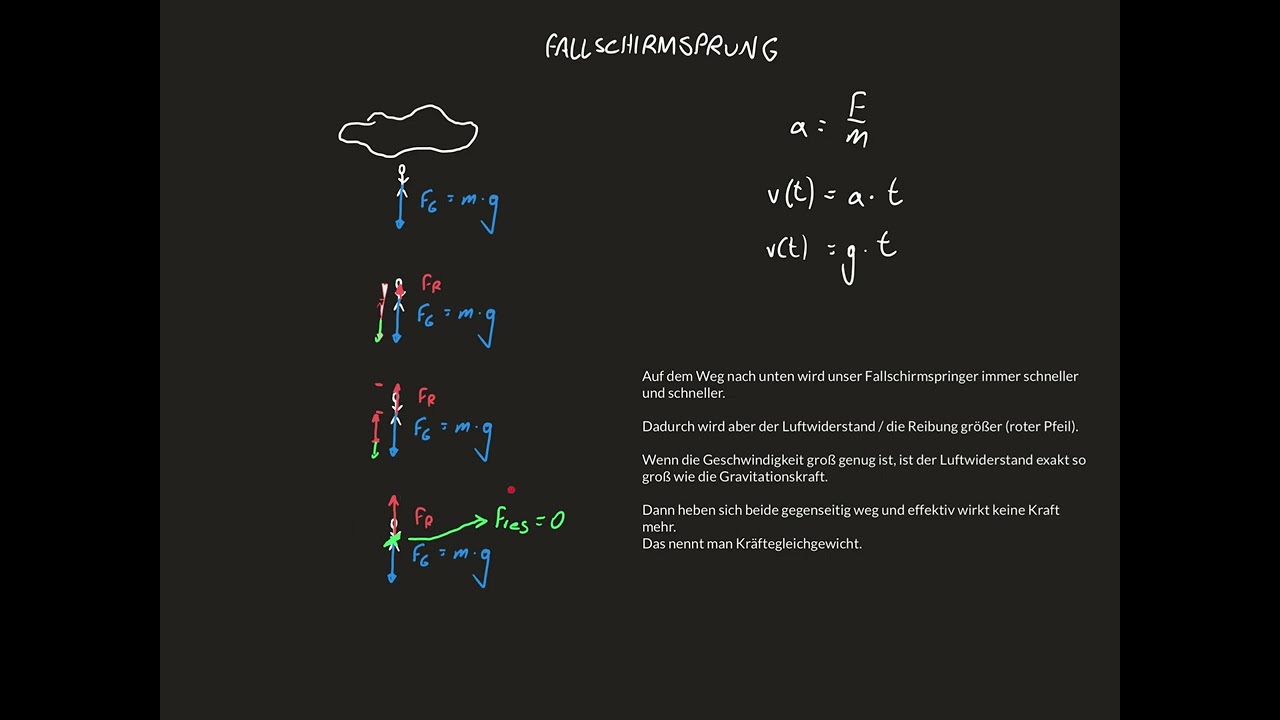 FALLSCHIRMSPRUNG
a = F/m
v(t) = a · t
v(t) = g · t
F_G = m · g
F_R
F_G = m · g
F_R
F_G = m · g
F_R
F_res = 0
F_G = m · g
Auf dem Weg nach unten wird unser Fallschirmspringer immer schneller
und schneller.
Dadurch wird aber der Luftwiderstand / die Reibung größer (roter Pfeil).
Wenn die Geschwindigkeit groß genug ist, ist der Luftwiderstand exakt so
groß wie die Gravitationskraft.
Dann heben sich beide gegenseitig weg und effektiv wirkt keine Kraft
mehr.
Das nennt man Kräftegleichgewicht.